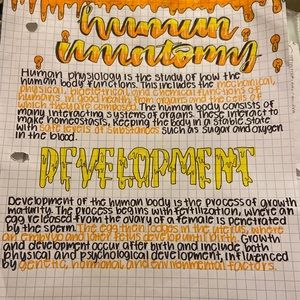 human
anatomy
Human physiology is the study of how the
human body functions. This includes the mechanical,
physical, bioelectrical, and biochemical functions of
humans in good health, from organs and the cells of
which they are composed. The human body consists of
many interacting systems of organs. These interact to
make homeostasis, keeping the body in a stable state
with safe levels of substances such as sugar and oxygen
in the blood.
DEVELOPMENT
Development of the human body is the process of growth
maturity. The process begins with fertilization, where an
egg released from the ovary of a female is penetrated
by the sperm. The egg then lodges in the uterus, where
an embryo and later fetus develop until birth. Growth
and development occur after birth and include both
physical and psychological development, influenced
by genetic, hormonal and environmental factors.